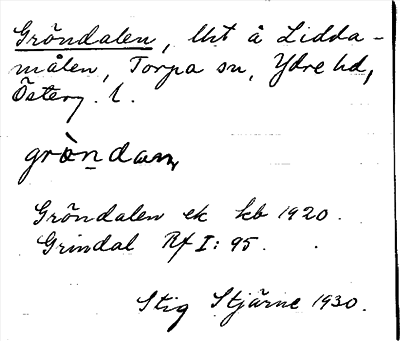 Gröndalen, lht å Lidda-
målen, Torpa sn, Ydre hd,
Österg. l.
gròndan,
Gröndalen ek kb 1920.
Grindal Rf I: 95.
Stig Stjärne 1930.